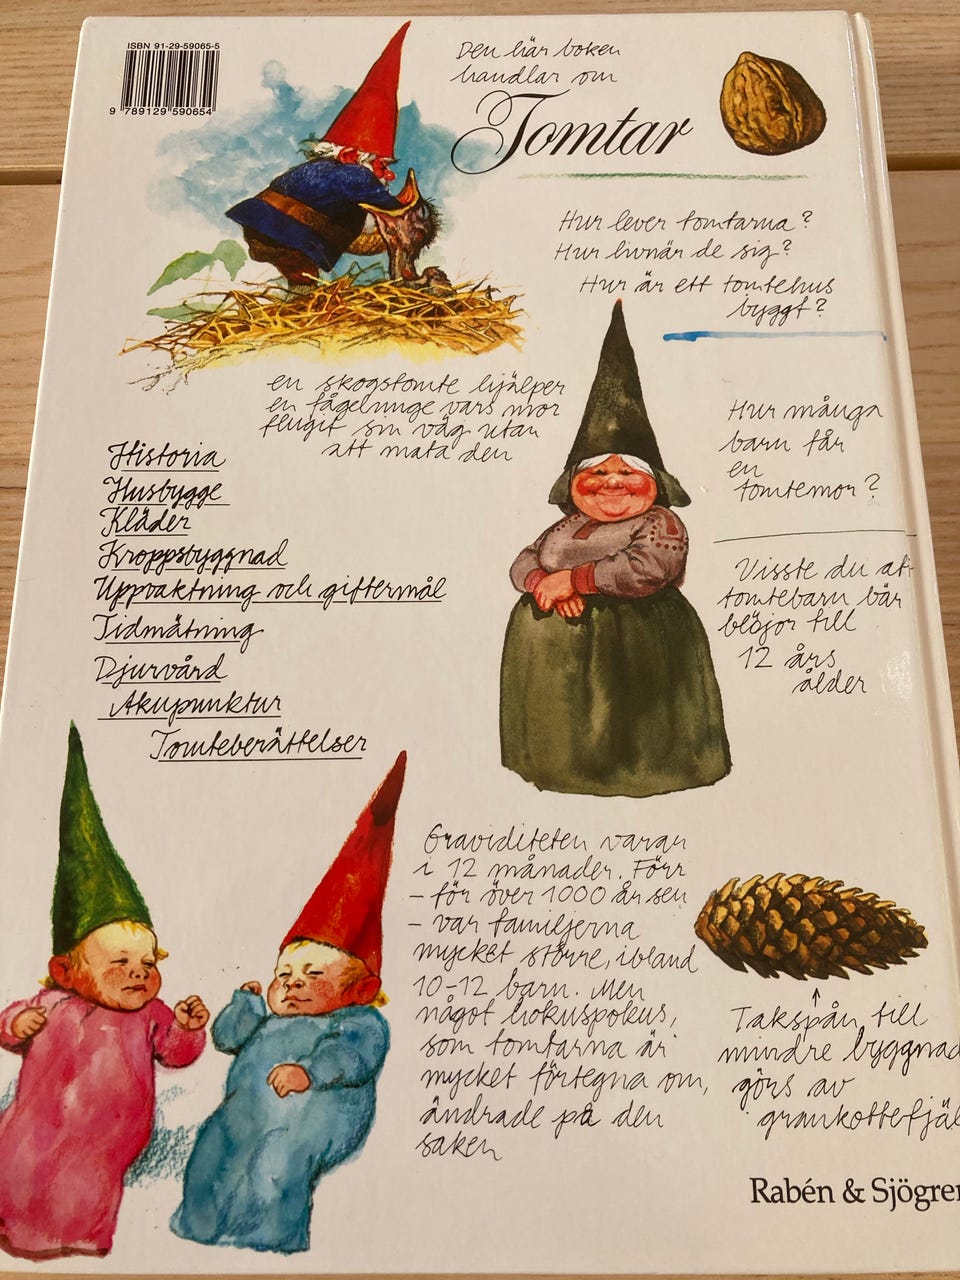 ISBN 91-29-59065-5
9 789129 590654
Den här boken
handlar om
Tomtar
Hur lever tomtarna?
Hur livnär de sig?
Hur är ett tomtehus
byggt?
en skogstomte hjälper
en fågelunge vars mor
flugit sin väg utan
att mata den
Hur många
barn får
en
tomtemor?
Historia
Husbygge
Kläder
Kroppsbyggnad
Uppvaktning och giftermål
Tidmätning
Djurvård
Akupunktur
Tomteberättelser
Visste du at
tomtebarn bär
blöjor till
12 års
ålder
Graviditeten varar
i 12 månader. Förr
- för över 1000 år sen
- var familjerna
mycket större, ibland
10-12 barn. Men
något hokuspokus,
som tomtarna är
mycket förtegna om,
ändrade på den
saken
Takspån till
mindre byggnad
görs av
grankottefjäl
Rabén & Sjögren